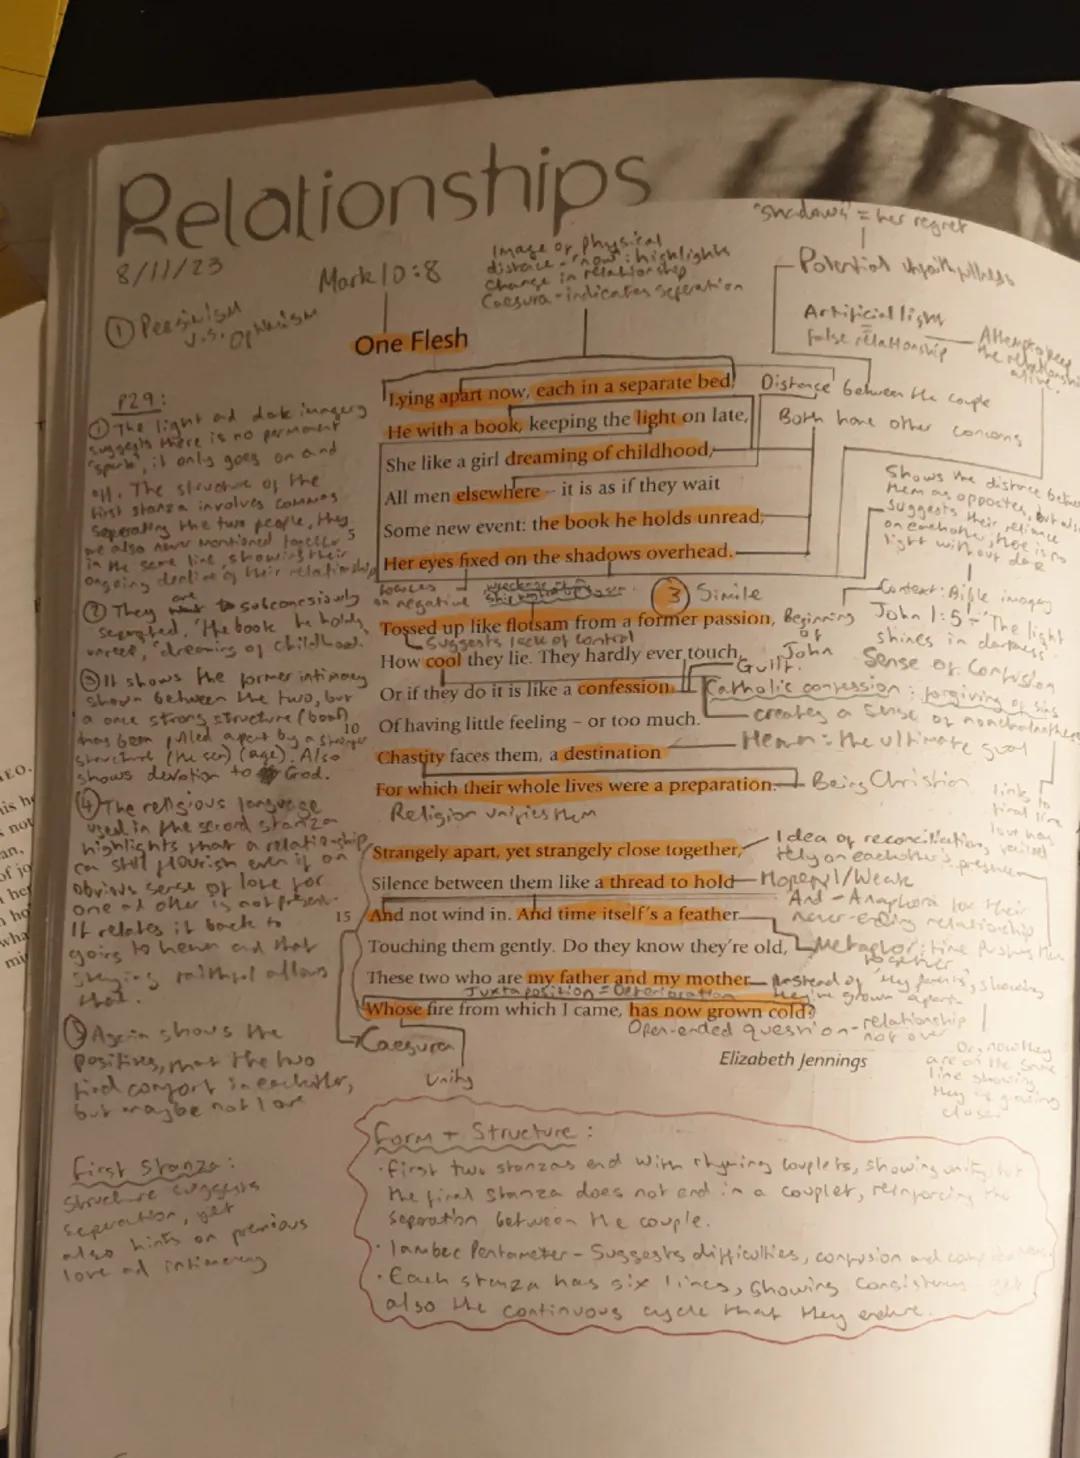 Relationships
8/11/23
Mark 10:8
① Pessimism
v.s. Optimism
Image of physical
distance - "now": highlights
change in relationship
Caesura - indicates seperation
"shadows" = her regret
Potential unfaithfulness
Artificial light
=
false relationship
Attempt keep
the relationship
alive
One Flesh
Lying apart now, each in a separate bed,
He with a book, keeping the light on late,
She like a girl dreaming of childhood,
All men elsewhere – it is as if they wait
5
Some new event: the book he holds unread,
Her eyes fixed on the shadows overhead.
Distance between the couple
Both have other concerns
Shows the distance between
them as opposites, but also
suggests their reliance
on eachother, there is no
light without dark
focuses
on negative
③ Simile
Context: Bible imagery
John 1:5 - "The light
shines in darkness
Beginning
of
John
Tossed up like flotsam from a former passion,
Suggests lack of control
How cool they lie. They hardly ever touch,
Or if they do it is like a confession
10
Of having little feeling – or too much.
Chastity faces them, a destination
For which their whole lives were a preparation.
Guilt.
Sense of Confusion
Catholic confession: forgiving of sins
creates a sense of
Heaven: the ultimate goal
Being Christian
Religion unifies them
links to
final line
love has
Strangely apart, yet strangely close together,
Silence between them like a thread to hold
15
And not wind in. And time itself's a feather
Touching them gently. Do they know they're old,
These two who are my father and my mother
Juxtaposition = Deterioration
Whose fire from which I came, has now grown cold?
Idea of reconciliation,
rely on eachother's presence
Hopeful/Weak
And - Anaphora for their
never-ending relationship
Metaphor: time pushes them
together
Instead of 'My parents', showing
they've grown apart
Open-ended question - relationship
not over
Or, now they
are on the same
line showing
they're growing
closer
Caesura
Unity
Elizabeth Jennings
P29:
① The light and dark imagery
suggests there is no permanent
'spark', it only goes on and
off. The structure of the
first stanza involves commas
seperating the two people, they
are also never mentioned together
in the same line, showing their
ongoing decline of their relationship
② They are subconsciously
seperated, 'the book he holds
unread,' 'dreaming of childhood.'
③ It shows the former intimacy
shown between the two, but
a once strong structure (boat)
has been pulled apart by a stronger
structure (the sea) (age). Also
shows devotion to God.
④ The religious language
used in the second stanza
highlights that a relationship
can still flourish even if an
obvious sense of love for
one and other is not present.
It relates it back to
going to heaven and that
staying faithful allows
that.
⑤ Again shows the
positives, that the two
find comfort in eachother,
but maybe not love
First Stanza:
Structure suggests
seperation, yet
also hints on previous
love and intimacy
Form + Structure:
· First two stanzas end with rhyming couplets, showing unity, but
the final stanza does not end in a couplet, reinforcing the
seperation between the couple.
· Iambic Pentameter - Suggests difficulties, confusion and
· Each stanza has six lines, showing consistency yet
also the continuous cycle that they endure.